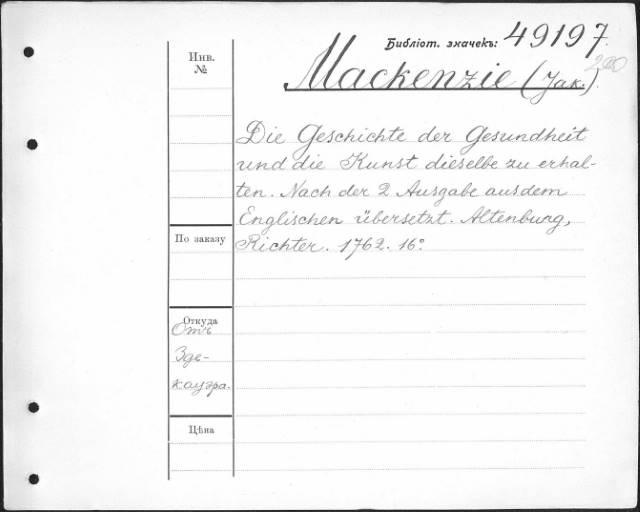 Библіот. значекъ: 49197.
200
Инв.
№
Mackenzie (Jak.).
Die Geschichte der Gesundheit
und die Kunst dieselbe zu erhal-
ten. Nach der 2 Ausgabe aus dem
Englischen übersetzt. Altenburg,
Richter. 1762. 16°
По заказу
Откуда
Отъ
Зде-
кауэра.
Цѣна